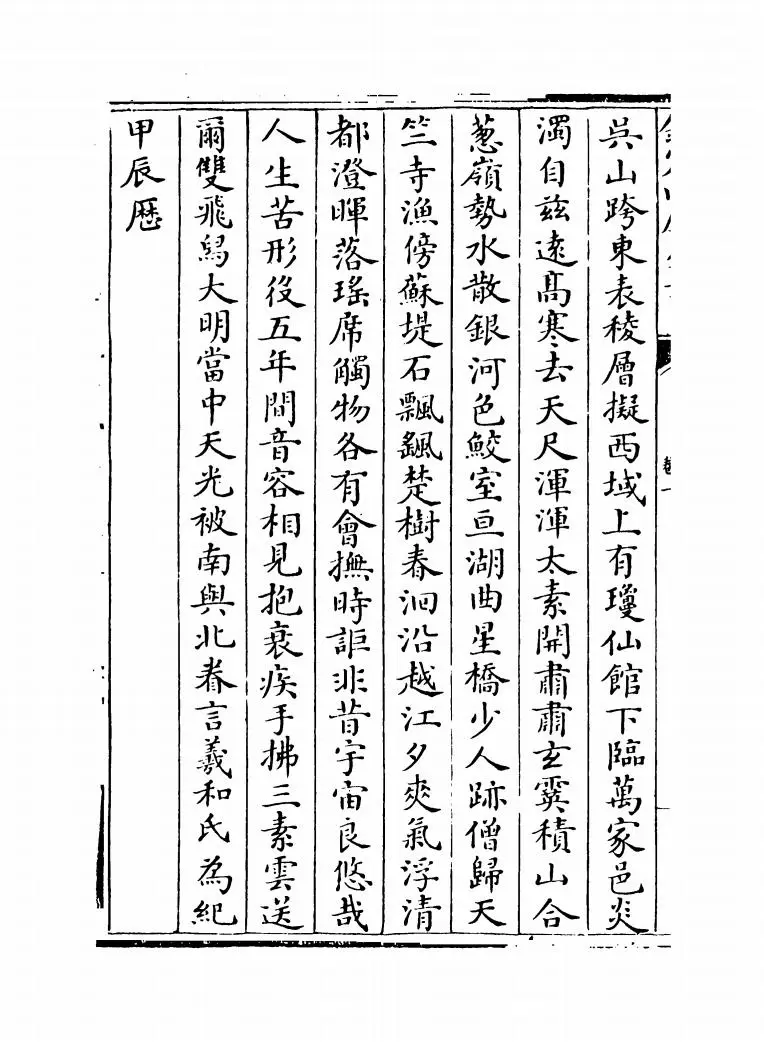 吳山跨東表稜層擬西域上有瓊仙館下臨萬家邑炎
濁自兹逺髙寒去天尺渾渾太素開肅肅玄霙積山合
蔥嶺勢水散銀河色鮫室亘湖曲星橋少人跡僧歸天
竺寺漁傍蘇堤石飄颻楚樹春洄沿越江夕爽氣浮清
都澄暉落瑤席觸物各有會撫時詎非昔宇宙良悠哉
人生苦形役五年間音容相見抱衰疾手拂三素雲送
爾雙飛舄大明當中天光被南與北眷言羲和氏為紀
甲辰厯